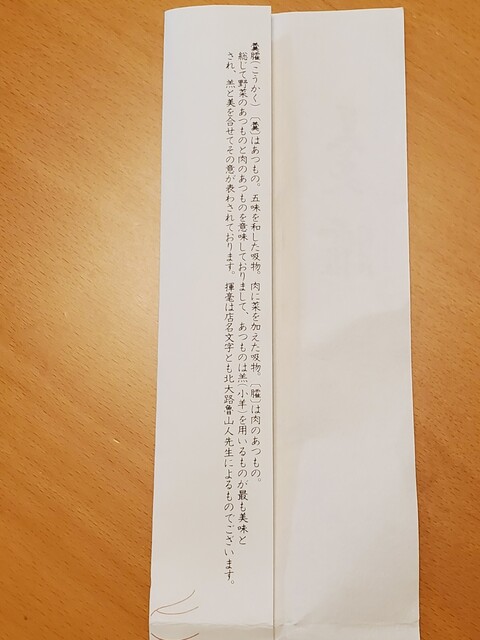 羹臛(こうかく) 〔羹〕はあつもの。五味を和した吸物。肉に菜を加えた吸物。〔臛〕は肉のあつもの。
総じて野菜のあつものと肉のあつものを意味しておりまして、あつものは羔(小羊)を用いるものが最も美味と
され、羔と美を合せてその意が表わされております。揮毫は店名文字とも北大路魯山人先生によるものでございます。